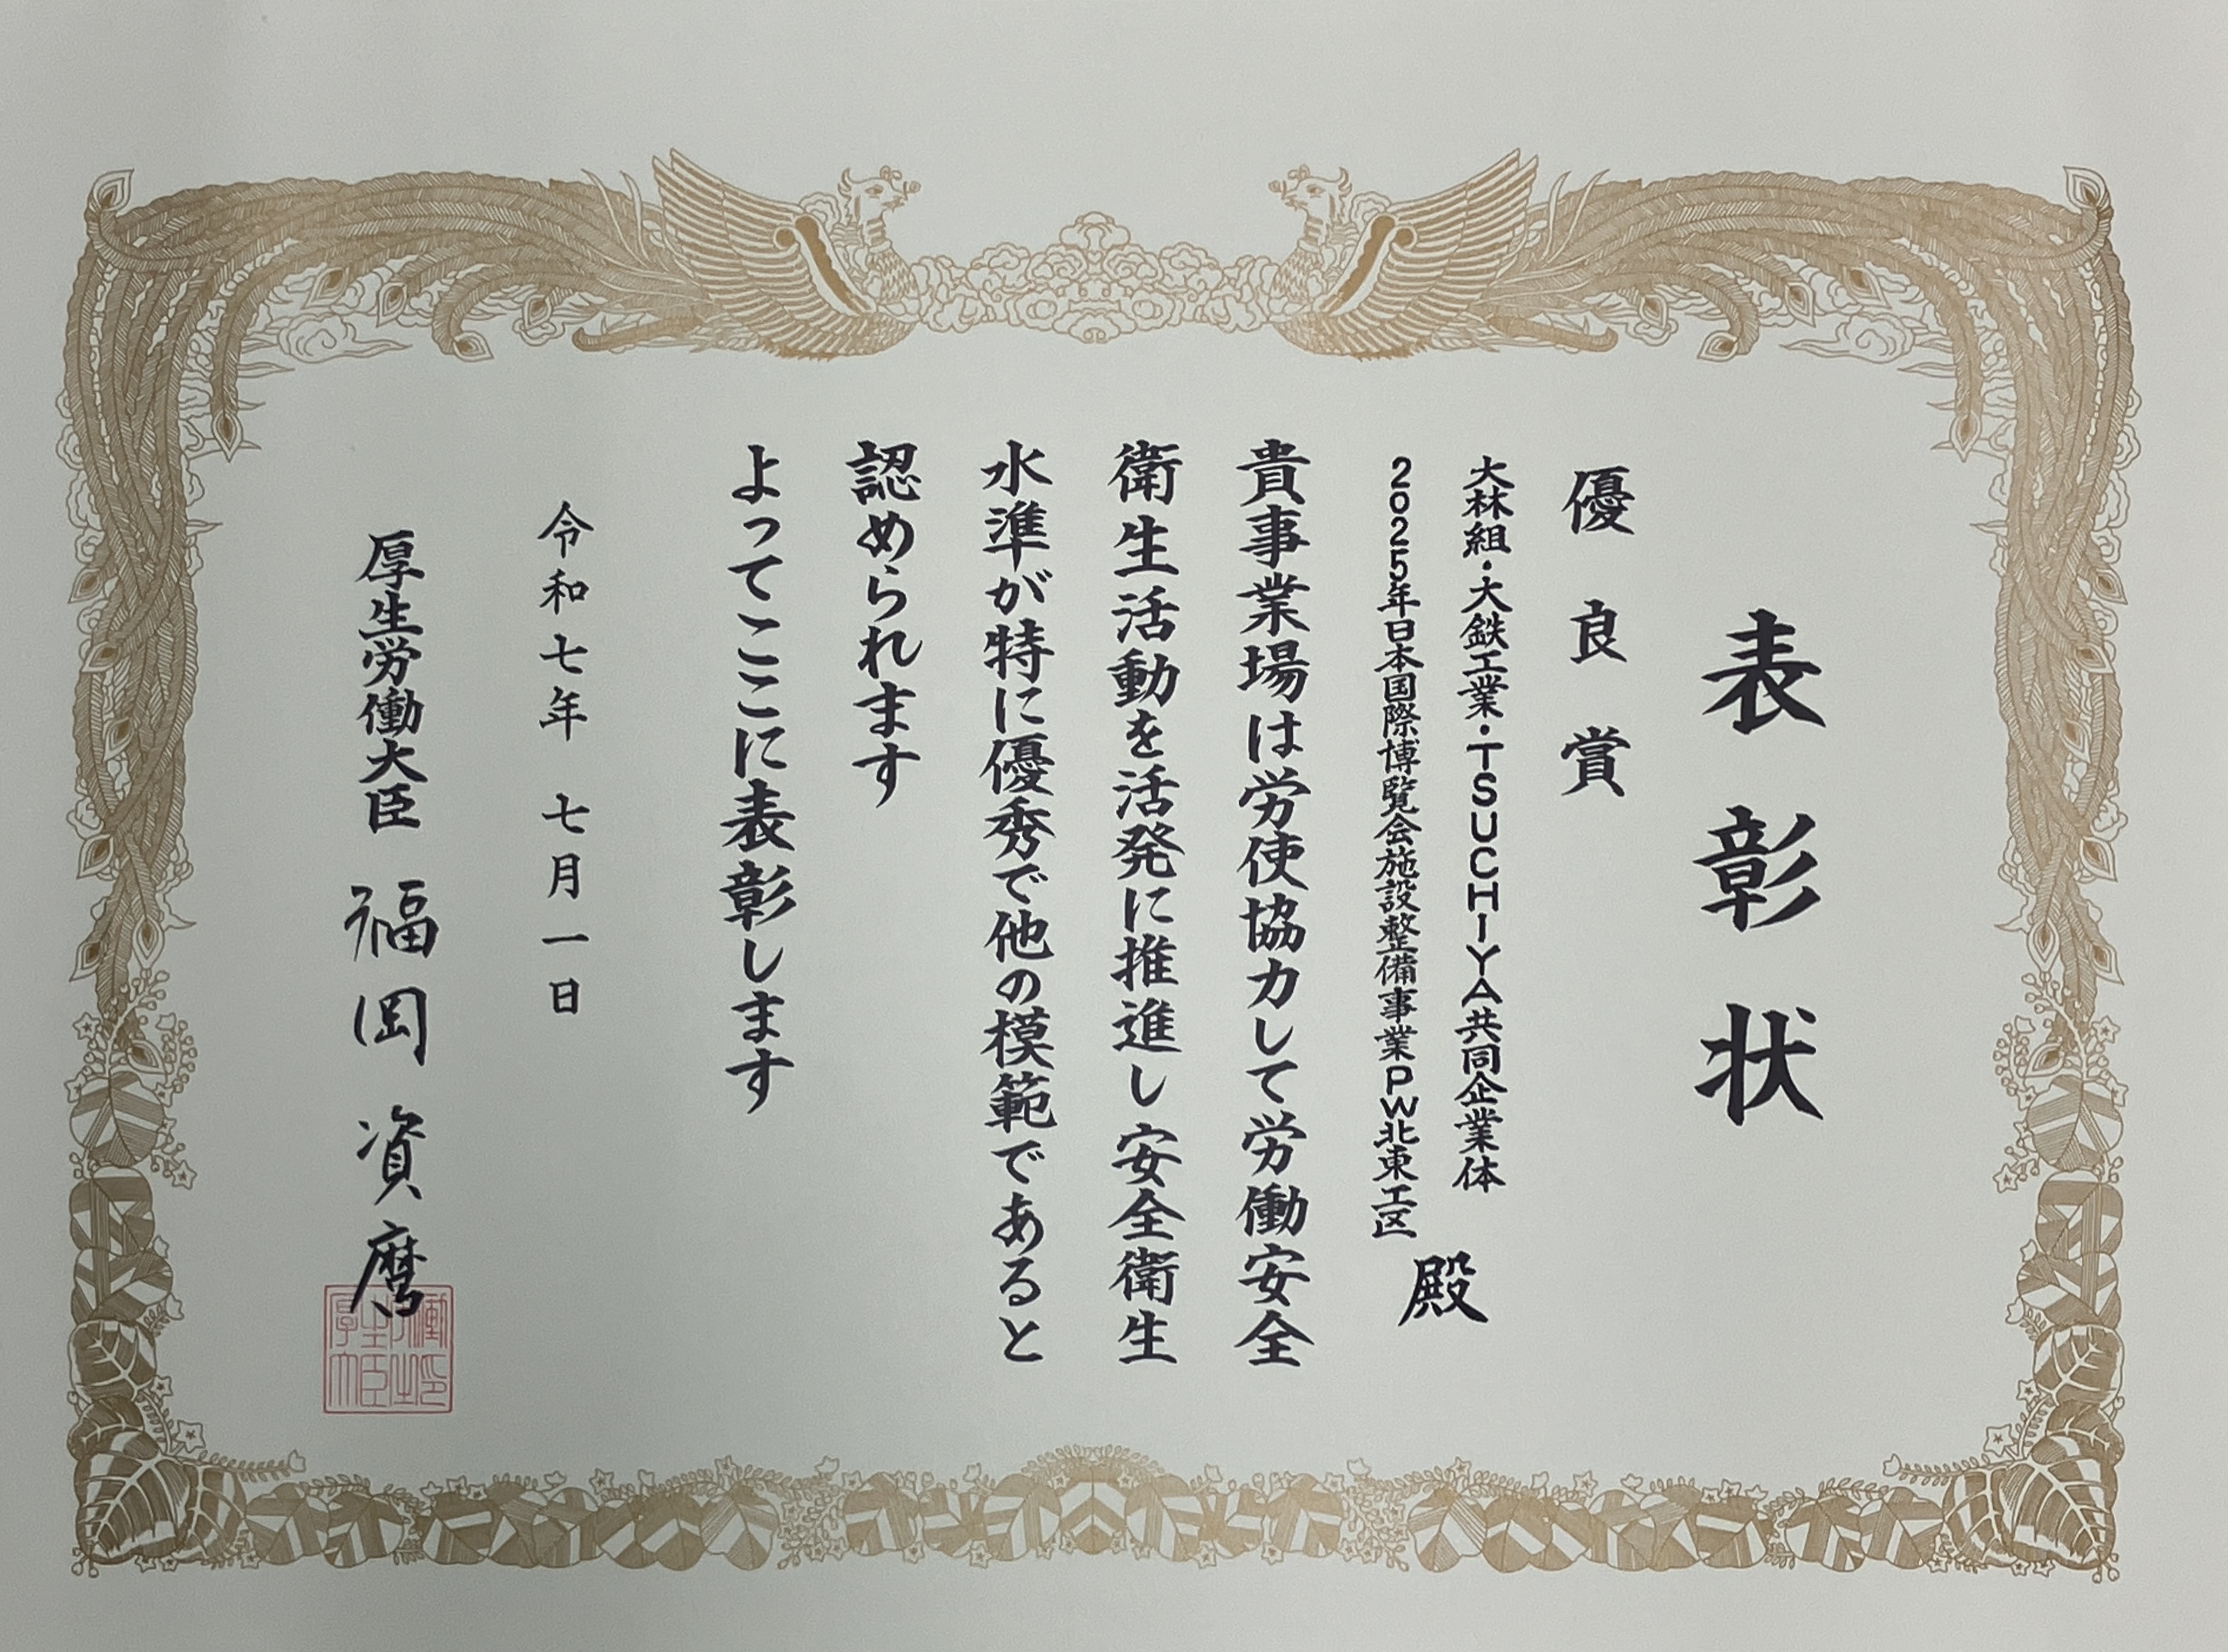 表彰状
優良賞
大林組・大鉄工業・TSUCHIYA共同企業体
2025年日本国際博覧会施設整備事業PW北東工区
殿
貴事業場は労使協力して労働安全
衛生活動を活発に推進し安全衛生
水準が特に優秀で他の模範であると
認められます
よってここに表彰します
令和七年 七月一日
厚生労働大臣 福岡資麿